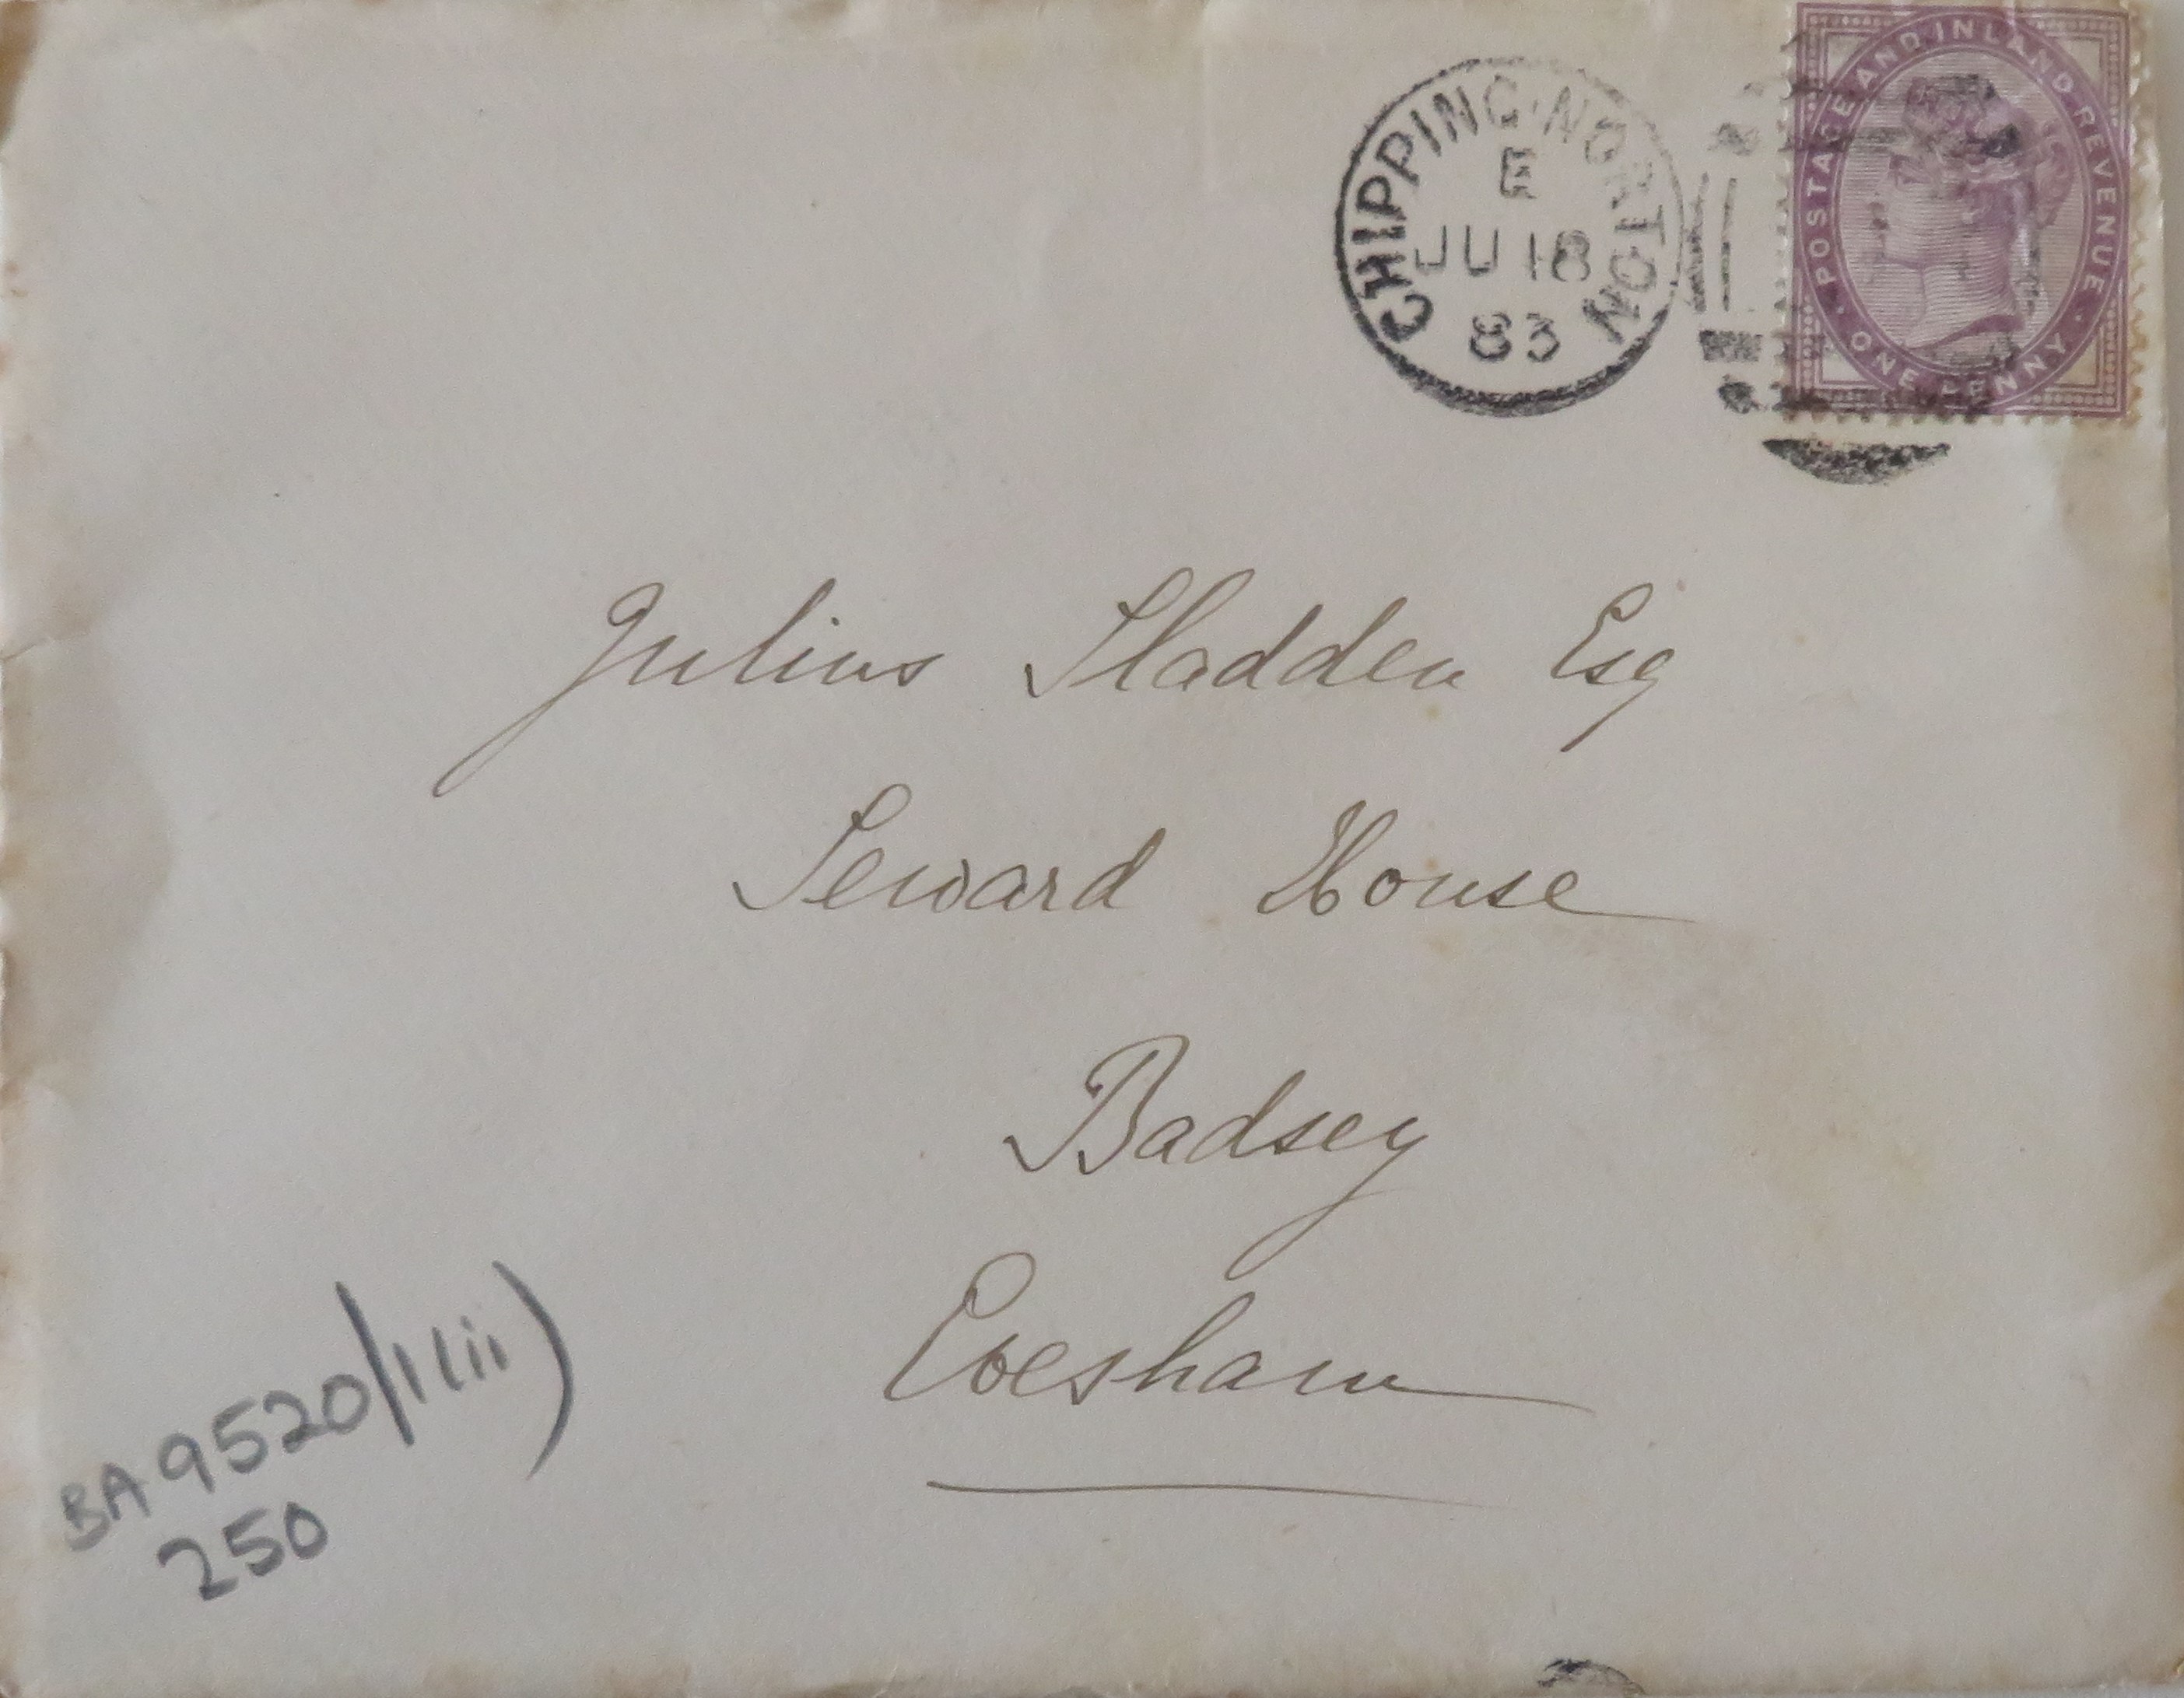 CHIPPING·NORTON
E
JU 18
83
POSTAGE AND INLAND REVENUE
ONE PENNY
Julius Sladden Esq
Seward House
Badsey
Evesham
BA 9520/1(ii)
250